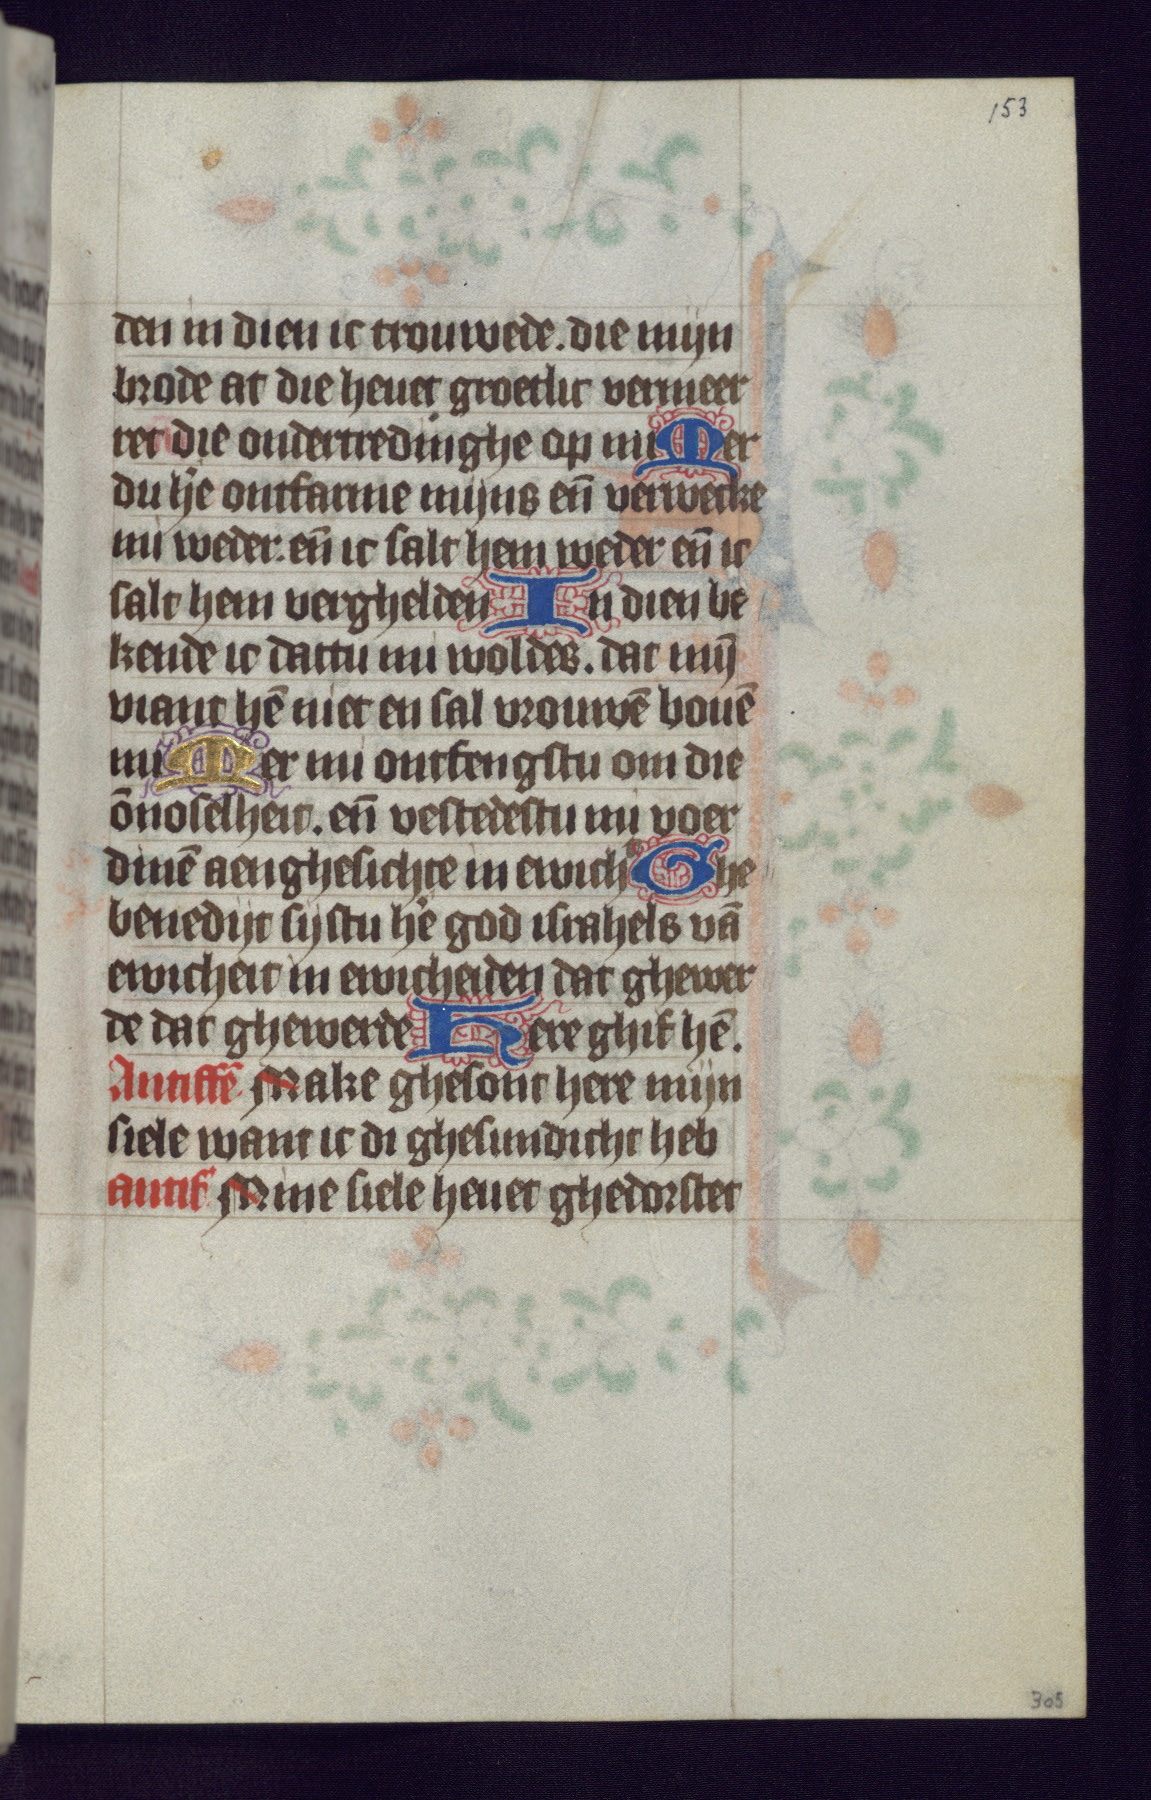 153
den in dien ic trouwede. die mijn
brode at die heuet groetlic vermeer
ret die ondertredinghe op mi Mer
du h̄e ontfarme mijns en̄ verwecke
mi weder. en̄ ic salt hem weder en̄ ic
salt hem verghelden In dien be
kende ic dattu mi woldes. dat mij̄
viant hē niet en sal vrouwē bouē
mi Mer mi ontfengstu om die
ōnoselheit. en̄ vestedestu mi voer
dinē aenghesichte in ewich Ghe
benedijt sijstu h̄e god israhels vā
ewicheit in ewicheiden dat ghewer
de dat ghewerde Here ghif hē.
Antiffē Make ghesont here mijn
siele want ic di ghesundicht heb
antif Mine siele heuet ghedorstet
305